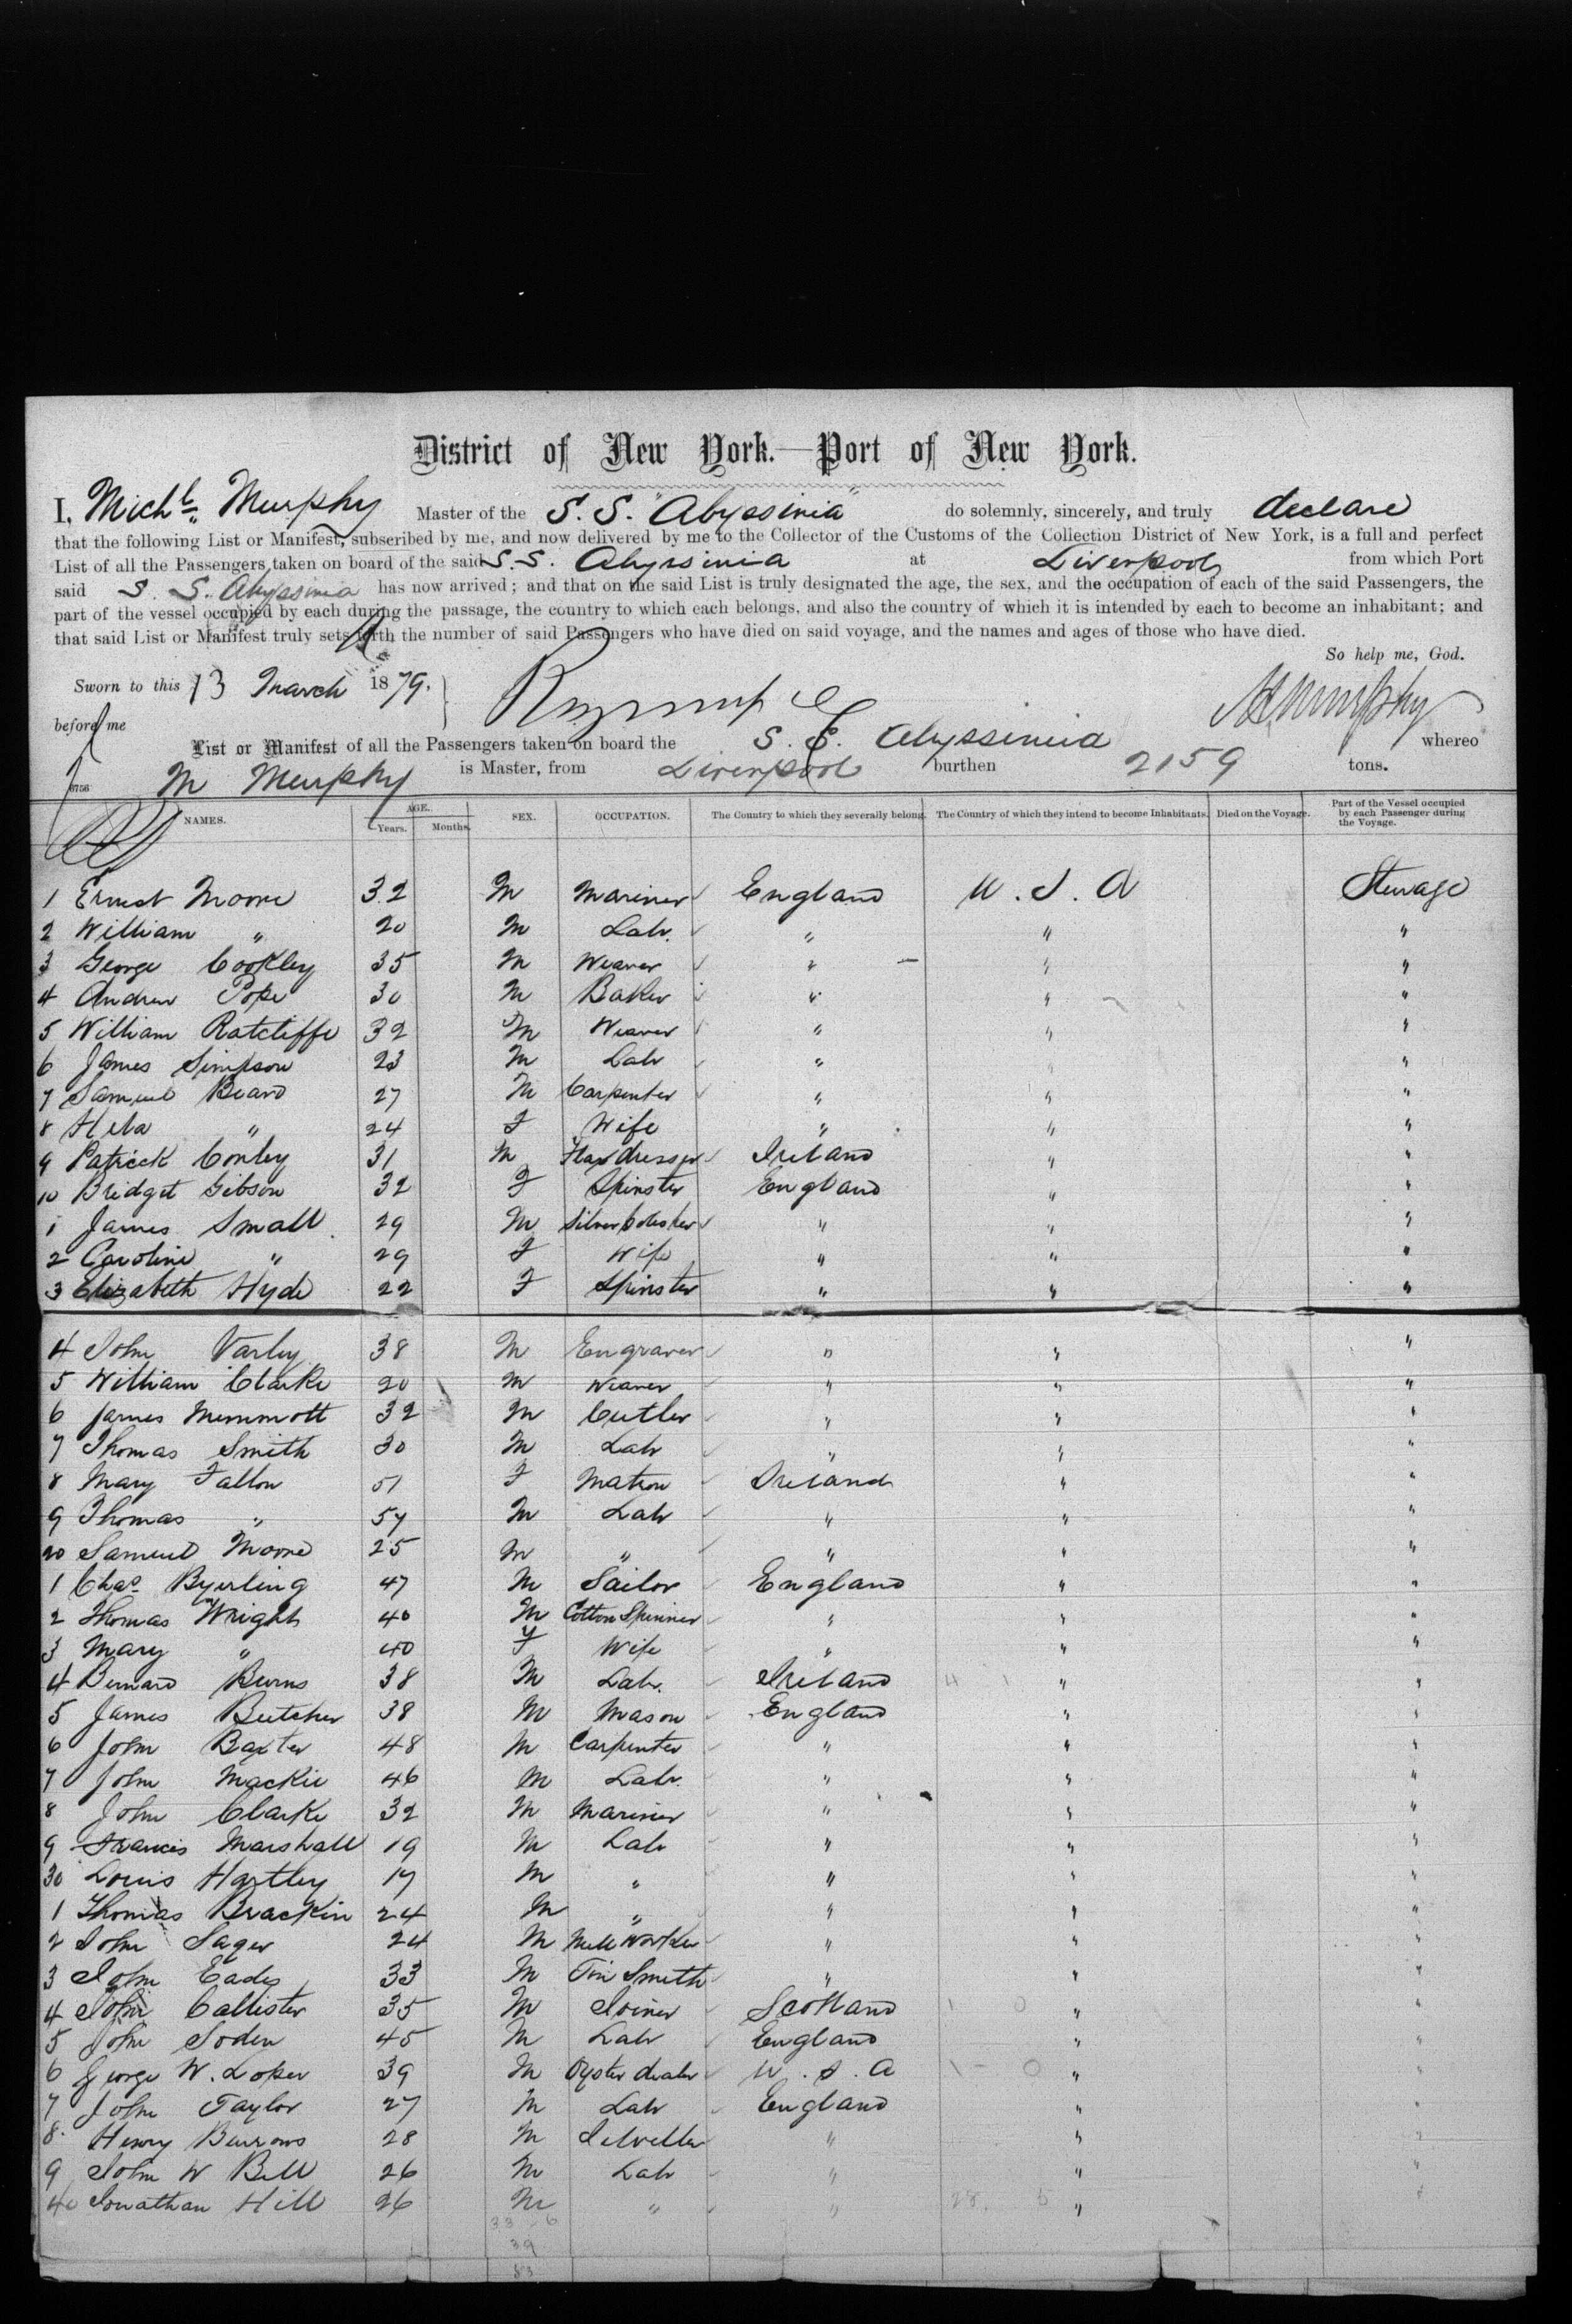 District of New York.—Port of New York.
I, Michl. Murphy Master of the S. S. "Abyssinia" do solemnly, sincerely, and truly declare
that the following List or Manifest, subscribed by me, and now delivered by me to the Collector of the Customs of the Collection District of New York, is a full and perfect
List of all the Passengers taken on board of the said S.S. Abyssinia at Liverpool from which Port
said S. S. Abyssinia has now arrived; and that on the said List is truly designated the age, the sex, and the occupation of each of the said Passengers, the
part of the vessel occupied by each during the passage, the country to which each belongs, and also the country of which it is intended by each to become an inhabitant; and
that said List or Manifest truly sets forth the number of said Passengers who have died on said voyage, and the names and ages of those who have died.
So help me, God.
Sworn to this 13 March 1879.
before me
M Murphy
List or Manifest of all the Passengers taken on board the S. S. Abyssinia whereo
M Murphy is Master, from Liverpool burthen 2159 tons.
NAMES. AGE. Years. Months. SEX. OCCUPATION. The Country to which they severally belong. The Country of which they intend to become Inhabitants. Died on the Voyage. Part of the Vessel occupied by each Passenger during the Voyage.
1 Ernest Moore 32 M Mariner England U.S.A Steerage
2 William " 20 M Labr. " " "
3 George Cookley 35 M Weaver " " "
4 Andrew Pope 30 M Baker " " "
5 William Ratcliffe 32 M Weaver " " "
6 James Simpson 23 M Labr " " "
7 Samuel Beard 27 M Carpenter " " "
8 " 24 F Wife " " "
9 Patrick Conley 31 M Flax dresser Ireland " "
10 Bridget Gibson 32 F Spinster England " "
1 James Small 29 M Silver " " "
2 Caroline " 29 F Wife " " "
3 Elizabeth Hyde 22 F Spinster " " "
4 John Varley 38 M Engraver " " "
5 William Clarke 20 M Weaver " " "
6 James Memmott 32 M Cutler " " "
7 Thomas Smith 30 M Labr " " "
8 Mary Fallon 51 F Matron Ireland " "
9 Thomas " 57 M Labr " " "
20 Samuel Moore 25 M " " " "
1 Chas. Byerling 47 M Sailor England " "
2 Thomas Wright 40 M Cotton Spinner " " "
3 Mary " 40 F Wife " " "
4 Bernard Burns 38 M Labr. Ireland " "
5 James Butcher 38 M Mason England " "
6 John Baxter 48 M Carpenter " " "
7 John Mackie 46 M Labr. " " "
8 John Clarke 32 M Mariner " " "
9 Francis Marshall 19 M Labr " " "
30 Louis Hartley 17 M " " " "
1 Thomas Brackin 24 M " " " "
2 John Sager 24 M Mill Worker " " "
3 John Eades 33 M Tin Smith " " "
4 John Callister 35 M Joiner Scotland " "
5 John Soden 45 M Labr England " "
6 George W. Loper 39 M Oyster dealer U.S.A " "
7 John Taylor 27 M Labr England " "
8 Henry Burrows 28 M Jeweller " " "
9 John W Bell 26 M Labr " " "
40 Jonathan Hill 26 M " " " "
33 6
39
83